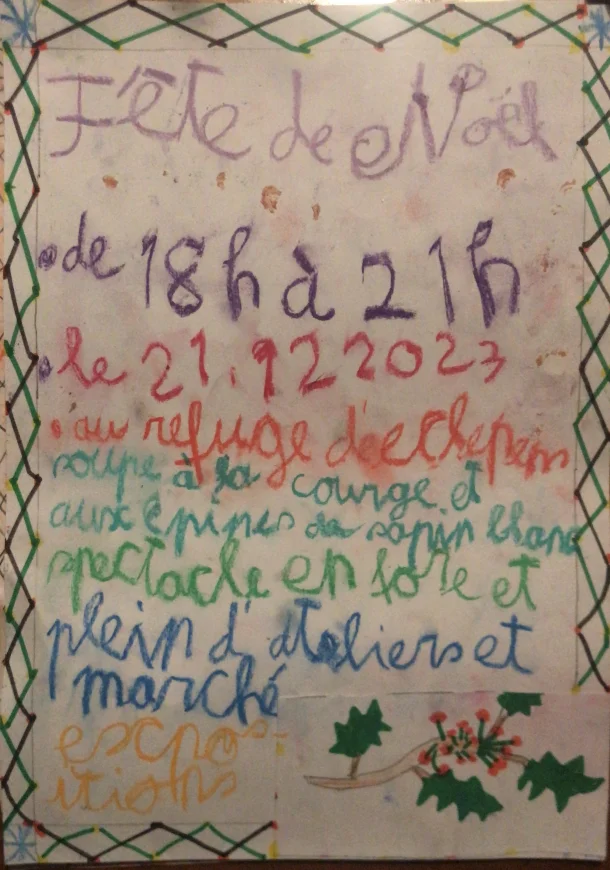 Fête de Noël
• de 18h à 21h
• le 21.12 2023
• au refuge d'eclepens
soupe à la courge et
aux épines de sapin blanc
spectacle en forê et
plein d'ateliers et
marché
escpos-
itions